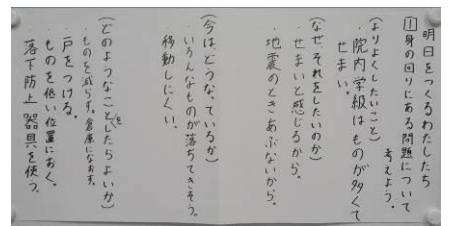 明日をつくるわたしたち
1 身の回りにある問題について
考えよう。
(よりよくしたいこと)
・院内学級はものが多くて
せまい。
(なぜそれをしたいのか)
・せまいと感じるから。
・地震のときあぶないから。
(今はどうなっているか)
・いろんなものが落ちてきそう。
・移動しにくい。
(どのようなことをしたらよいか)
・ものを減らす。倉庫になおす。
・戸をつける。
・ものを低い位置におく。
・落下防止器具を使う。